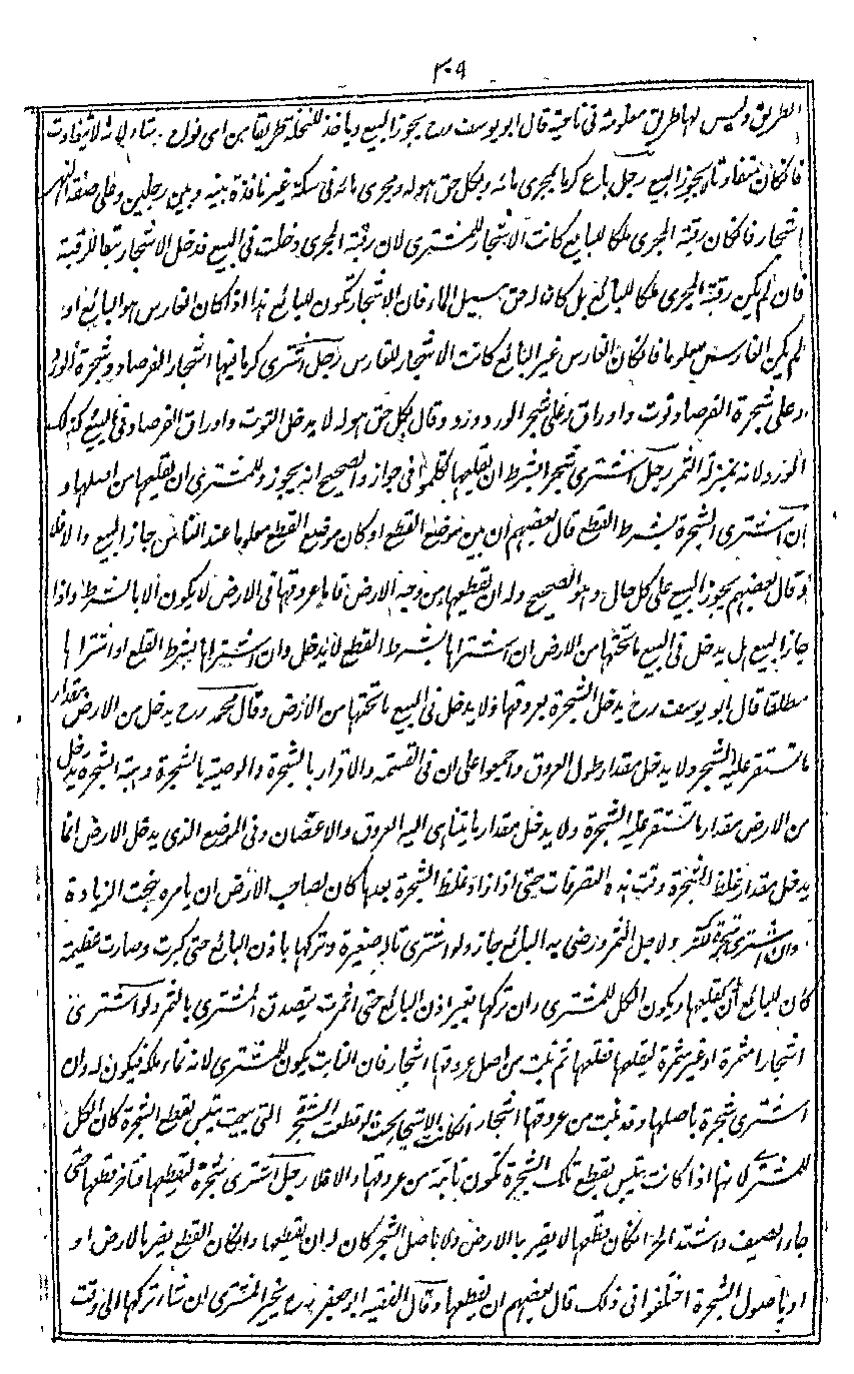 ٣٠٩
الطريق وليس لها طريق معلومة فى ناحية قال ابو يوسف رح يجوز البيع وياخذ للنخلة طريقا من اى نواح شاء لانه لا يتفاوت
فان كان متفاوتا لا يجوز البيع رجل باع كرما بمجرى مائه وبكل حق هو له ومجرى مائه فى سكة غير نافذة بينه وبين رجلين وعلى ضفة النهر
اشجار فان كان رقبة المجرى ملكا للبائع كانت الاشجار للمشترى لان رقبة المجرى دخلت فى البيع فدخل الاشجار تبعا للرقبة
فان لم يكن رقبة المجرى ملكا للبائع بل كان له حق مسيل الماء فان الاشجار تكون للبائع هذا اذا كان الغارس هو البائع او
لم يكن الغارس معلوما فان كان الغارس غير البائع كانت الاشجار للغارس رجل اشترى كرما فيها اشجار الفرصاد وشجرة الورد
وعلى شجرة الفرصاد توت واوراق وعلى شجر الورد ورد وقال بكل حق هو له لا يدخل التوت واوراق الفرصاد فى البيع كذلك
الورد لانه بمنزلة الثمر رجل اشترى شجرا بشرط ان يقلعها تكلموا فى جوازه والصحيح انه يجوز وللمشترى ان يقلعها من اصلها و
ان اشترى الشجرة بشرط القطع قال بعضهم ان بين موضع القطع او كان موضع القطع معلوما عند الناس جاز البيع والا فلا
وقال بعضهم يجوز البيع على كل حال وهو الصحيح وله ان يقطعها من وجه الارض فاما عروقها فى الارض لا يكون الا بالشرط واذا
جاز البيع هل يدخل فى البيع ما تحتها من الارض ان اشتراها بشرط القطع لا يدخل وان اشتراها بشرط القلع او اشتراها
مطلقا قال ابو يوسف رح يدخل الشجرة بعروقها ولا يدخل فى البيع ما تحتها من الارض وقال محمد رح يدخل من الارض مقدار
ما تستقر عليه الشجر ولا يدخل مقدار طول العروق واجمعوا على ان فى القسمة والاقرار بالشجرة والوصية بالشجرة وهبة الشجرة يدخل
من الارض مقدار ما تستقر عليه الشجرة ولا يدخل مقدار ما يتناهى اليه العروق والاغصان وفى الموضع الذى يدخل الارض انما
يدخل مقدار غلظ الشجرة وقت هذه التصرفات حتى اذا ازداد غلظ الشجرة بعدها كان لصاحب الارض ان يامره بنحت الزيادة
وان اشترى شجرة للثمر ولاجل الثمر ورضى به البائع جاز ولو اشترى تالة صغيرة وتركها باذن البائع حتى كبرت وصارت عظيمة
كان للبائع ان يقلعها ويكون الكل للمشترى وان تركها بغير اذن البائع حتى اثمرت يتصدق المشترى بالثمر ولو اشترى
اشجارا مثمرة او غير مثمرة ليقلعها فقلعها ثم نبت من اصل عروقها اشجار فان النابت يكون للمشترى لانه نماء ملكه فيكون له وان
اشترى شجرة باصلها وقد نبت من عروقها اشجار ان كانت الاشجار بحيث لو قطعت الشجرة التى بيعت يبس بقطع الشجرة كان الكل
للمشترى لانها اذا كانت يبس بقطع تلك الشجرة تكون نابتة من عروقها والا فلا رجل اشترى شجرة ليقطعها فتاخر قطعها حتى
جاء الصيف واشتد الحر ان كان قطعها لا يضر بالارض ولا باصل الشجر كان له ان يقطعها وان كان القطع يضر بالارض او
او باصول الشجرة اختلفوا فى ذلك قال بعضهم ان يقطعها وقال الفقيه ابو جعفر رح يخير المشترى ان شاء تركها الى وقت